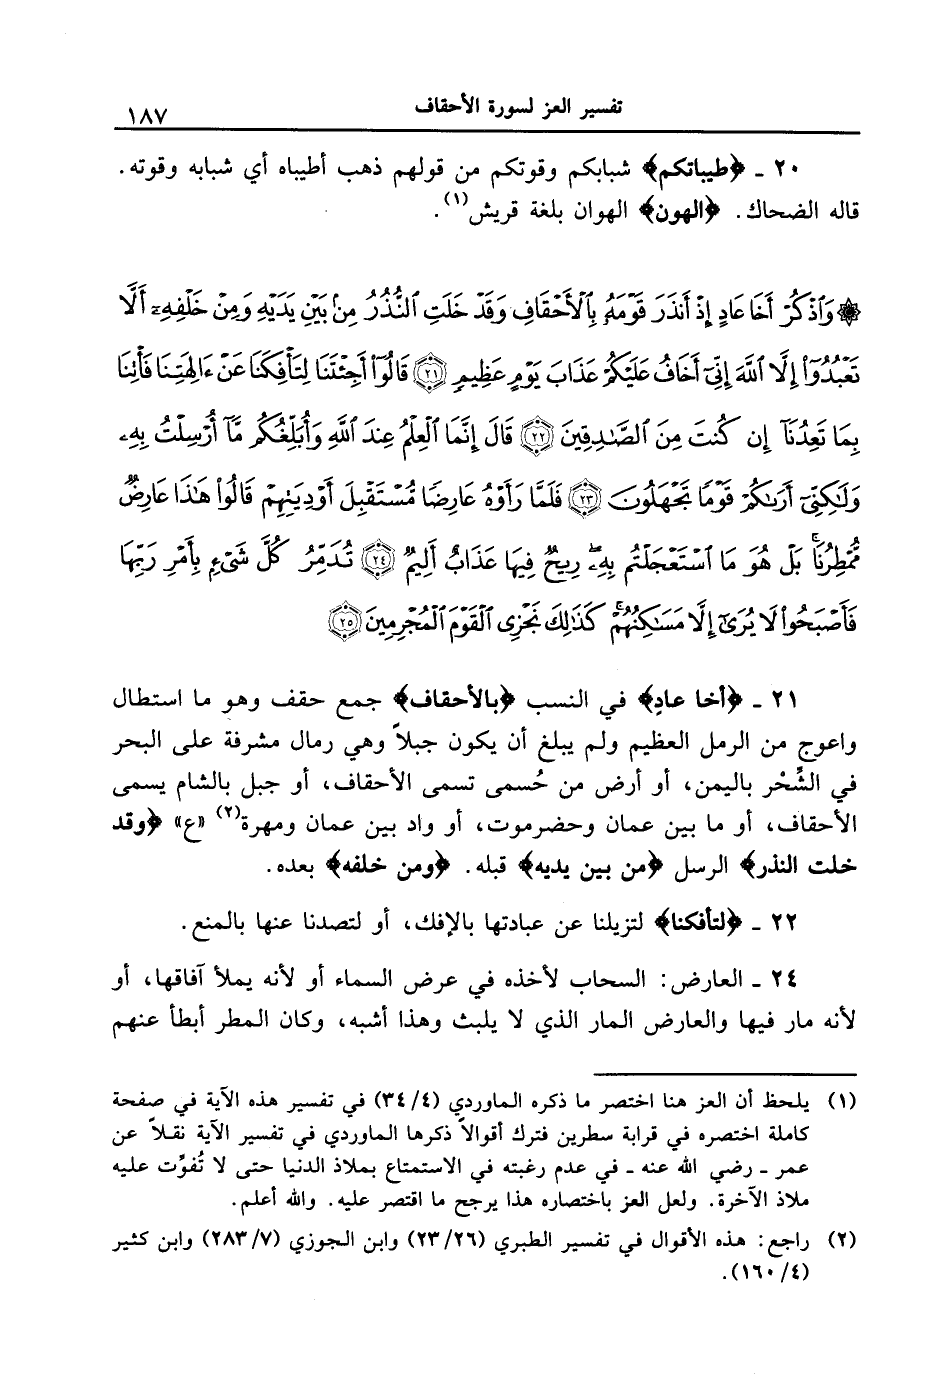 تفسير العز لسورة الأحقاف
١٨٧
٢٠ ـ ﴿طيباتكم﴾ شبابكم وقوتكم من قولهم ذهب أطيباه أي شبابه وقوته.
قاله الضحاك. ﴿الهون﴾ الهوان بلغة قريش(١).
۞ وَٱذۡكُرۡ أَخَا عَادٍ إِذۡ أَنذَرَ قَوۡمَهُۥ بِٱلۡأَحۡقَافِ وَقَدۡ خَلَتِ ٱلنُّذُرُ مِنۢ بَيۡنِ يَدَيۡهِ وَمِنۡ خَلۡفِهِۦٓ أَلَّا
تَعۡبُدُوٓاْ إِلَّا ٱللَّهَ إِنِّيٓ أَخَافُ عَلَيۡكُمۡ عَذَابَ يَوۡمٍ عَظِيمٖ ٢١ قَالُوٓاْ أَجِئۡتَنَا لِتَأۡفِكَنَا عَنۡ ءَالِهَتِنَا فَأۡتِنَا
بِمَا تَعِدُنَآ إِن كُنتَ مِنَ ٱلصَّٰدِقِينَ ٢٢ قَالَ إِنَّمَا ٱلۡعِلۡمُ عِندَ ٱللَّهِ وَأُبَلِّغُكُم مَّآ أُرۡسِلۡتُ بِهِۦ
وَلَٰكِنِّيٓ أَرَىٰكُمۡ قَوۡمٗا تَجۡهَلُونَ ٢٣ فَلَمَّا رَأَوۡهُ عَارِضٗا مُّسۡتَقۡبِلَ أَوۡدِيَتِهِمۡ قَالُواْ هَٰذَا عَارِضٞ
مُّمۡطِرُنَاۚ بَلۡ هُوَ مَا ٱسۡتَعۡجَلۡتُم بِهِۦۖ رِيحٞ فِيهَا عَذَابٌ أَلِيمٞ ٢٤ تُدَمِّرُ كُلَّ شَيۡءِۭ بِأَمۡرِ رَبِّهَا
فَأَصۡبَحُواْ لَا يُرَىٰٓ إِلَّا مَسَٰكِنُهُمۡۚ كَذَٰلِكَ نَجۡزِي ٱلۡقَوۡمَ ٱلۡمُجۡرِمِينَ ٢٥
٢١ ـ ﴿أخا عادٍ﴾ في النسب ﴿بالأحقاف﴾ جمع حقف وهو ما استطال
واعوج من الرمل العظيم ولم يبلغ أن يكون جبلاً وهي رمال مشرفة على البحر
في الشِّحْر باليمن، أو أرض من حُسمى تسمى الأحقاف، أو جبل بالشام يسمى
الأحقاف، أو ما بين عمان وحضرموت، أو واد بين عمان ومهرة(٢) «ع» ﴿وقد
خلت النذر﴾ الرسل ﴿من بين يديه﴾ قبله. ﴿ومن خلفه﴾ بعده.
٢٢ ـ ﴿لتأفكنا﴾ لتزيلنا عن عبادتها بالإفك، أو لتصدنا عنها بالمنع.
٢٤ ـ العارض: السحاب لأخذه في عرض السماء أو لأنه يملأ آفاقها، أو
لأنه مار فيها والعارض المار الذي لا يلبث وهذا أشبه، وكان المطر أبطأ عنهم
(١) يلحظ أن العز هنا اختصر ما ذكره الماوردي (٣٤/٤) في تفسير هذه الآية في صفحة
كاملة اختصره في قرابة سطرين فترك أقوالاً ذكرها الماوردي في تفسير الآية نقلاً عن
عمر ـ رضي الله عنه ـ في عدم رغبته في الاستمتاع بملاذ الدنيا حتى لا تُفوِّت عليه
ملاذ الآخرة. ولعل العز باختصاره هذا يرجح ما اقتصر عليه. والله أعلم.
(٢) راجع: هذه الأقوال في تفسير الطبري (٢٣/٢٦) وابن الجوزي (٢٨٣/٧) وابن كثير
(١٦٠/٤).